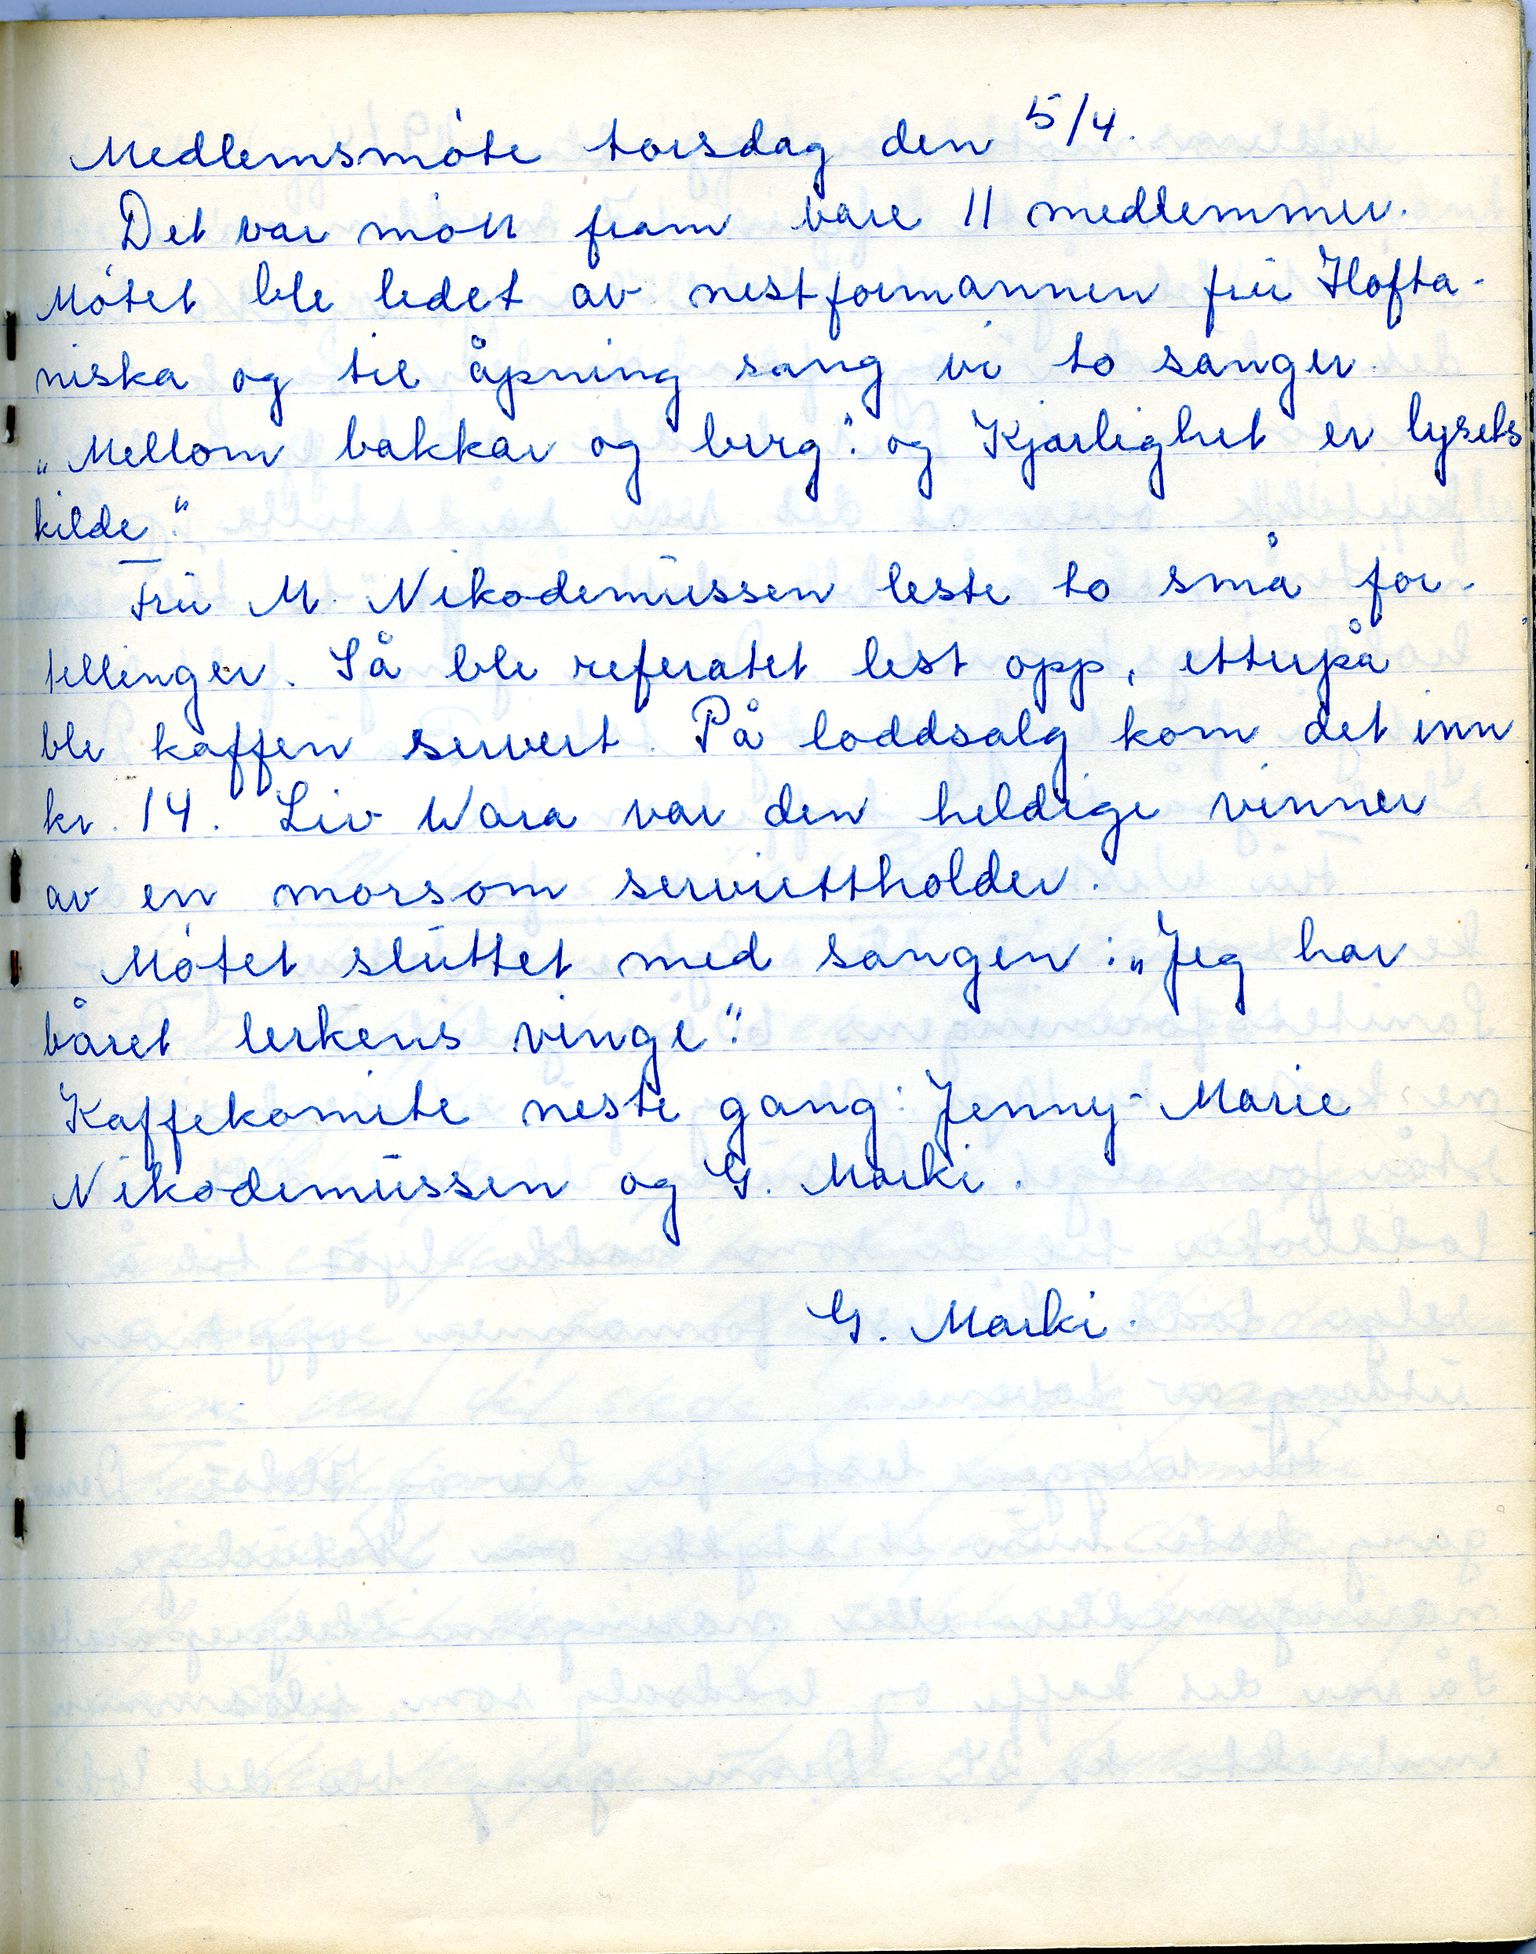 Medlemsmöte torsdag den 5/4.
Det var mött fram bare 11 medlemmer.
Mötet ble ledet av nestformannen fru Hofta-
niska og til åpning sang vi to sanger.
„Mellom bakkar og berg". og Kjærlighet er lysets
kilde".
Fru M. Nikodemussen leste to små for-
tellinger. Så ble referatet lest opp, etterpå
ble kaffen servert. På loddsalg kom det inn
kr. 14. Liv Wara var den heldige vinner
av en morsom serviettholder.
Mötet sluttet med sangen: „Jeg har
båret lerkens vinge".
Kaffekomite neste gang: Jenny-Marie
Nikodemussen og G. Marki.
G. Marki.